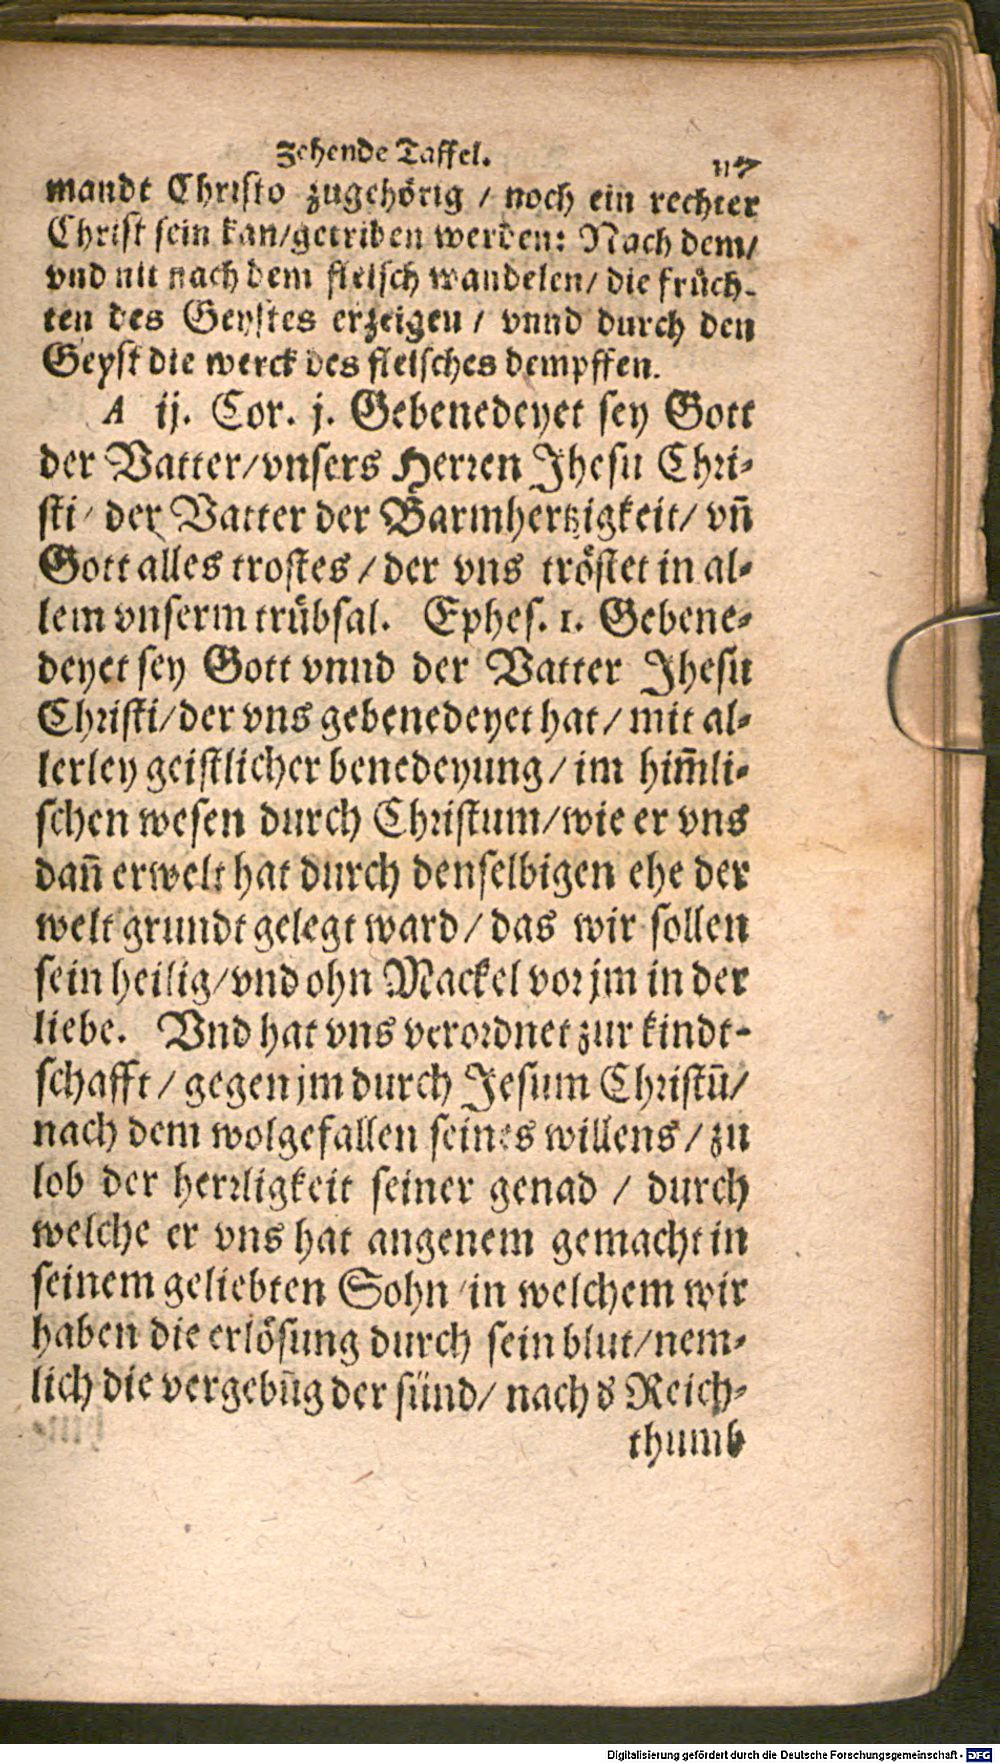 Zehende Taffel. 117
mandt Christo zugehörig / noch ein rechter
Christ sein kan/getriben werden: Nach dem/
vnd nit nach dem fleisch wandelen/ die früch-
ten des Geystes erzeigen / vnnd durch den
Geyst die werck des fleisches dempffen.
A ij. Cor. j. Gebenedeyet sey Gott
der Vatter/vnsers Herren Jhesu Chri-
sti/ der Vatter der Barmhertzigkeit/ vñ
Gott alles trostes / der vns tröstet in al-
lem vnserm trübsal. Ephes. 1. Gebene-
deyet sey Gott vnnd der Vatter Jhesu
Christi/der vns gebenedeyet hat / mit al-
lerley geistlicher benedeyung / im him̃li-
schen wesen durch Christum/wie er vns
dañ erwelt hat durch denselbigen ehe der
welt grundt gelegt ward / das wir sollen
sein heilig/vnd ohn Mackel vor jm in der
liebe. Vnd hat vns verordnet zur kindt-
schafft / gegen jm durch Jesum Christū/
nach dem wolgefallen seines willens / zu
lob der herrligkeit seiner genad / durch
welche er vns hat angenem gemacht in
seinem geliebten Sohn / in welchem wir
haben die erlösung durch sein blut/nem-
lich die vergebūg der sünd/ nach d Reich-
thumb
Digitalisierung gefördert durch die Deutsche Forschungsgemeinschaft - DFG